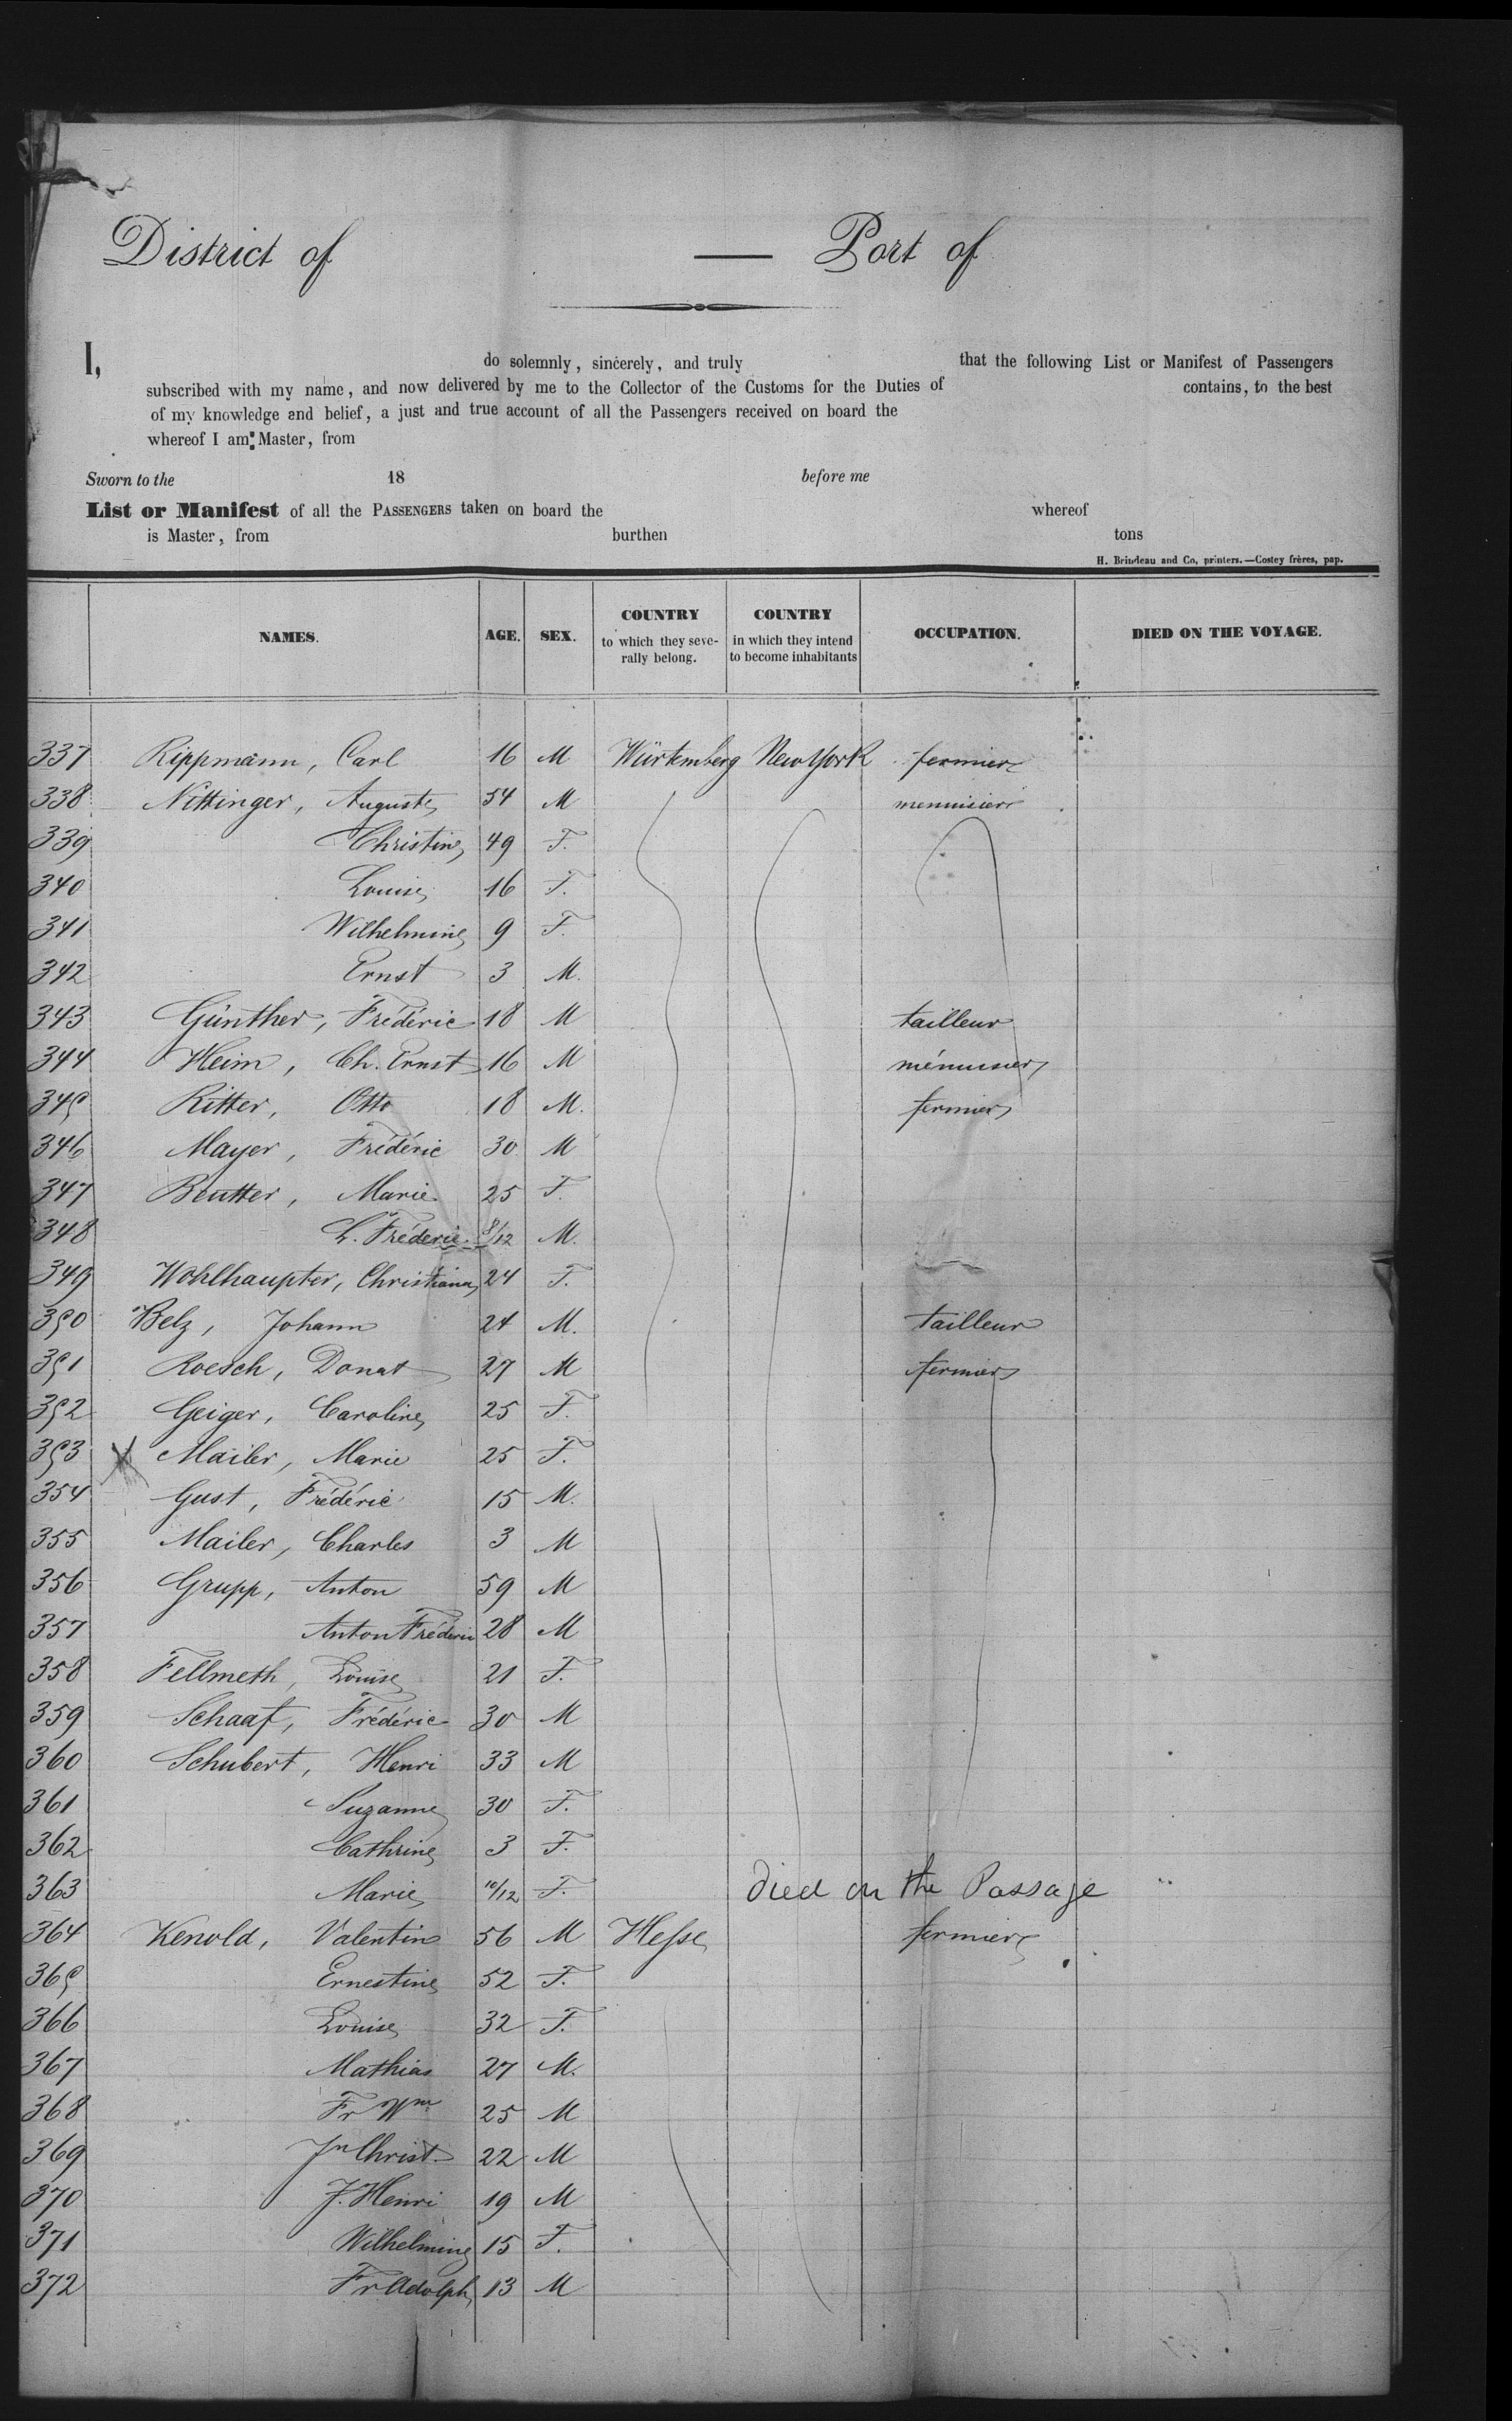 District of — Port of
I, do solemnly, sincerely, and truly that the following List or Manifest of Passengers
subscribed with my name, and now delivered by me to the Collector of the Customs for the Duties of contains, to the best
of my knowledge and belief, a just and true account of all the Passengers received on board the
whereof I am Master, from
Sworn to the 18 before me
List or Manifest of all the PASSENGERS taken on board the whereof
is Master, from burthen tons
H. Brindeau and Co, printers.—Costey frères, pap.
NAMES. AGE. SEX. COUNTRY to which they seve-rally belong. COUNTRY in which they intend to become inhabitants OCCUPATION. DIED ON THE VOYAGE.
337 Rippmann, Carl 16 M Würtemberg New York fermier
338 Nittinger, Auguste 54 M menuisier
339 Christine 49 F.
340 Louise 16 F.
341 Wilhelmine 9 F.
342 Ernst 3 M.
343 Günther, Frédéric 18 M tailleur
344 Heim, Ch. Ernst 16 M ménuisier
345 Ritter, Otto 18 M. fermier
346 Mayer, Frédéric 30 M
347 Beutter, Marie 25 F.
348 L. Fréderic 8/12 M.
349 Wohlhaupter, Christiana 24 F.
350 Belz, Johann 24 M. tailleur
351 Roesch, Donat 27 M fermier
352 Geiger, Caroline 25 F.
353 X Mailer, Marie 25 F.
354 Gust, Frédéric 15 M.
355 Mailer, Charles 3 M
356 Grupp, Anton 59 M
357 Anton Fréderic 28 M
358 Fellmeth, Louise 21 F.
359 Schaaf, Frédéric 30 M
360 Schubert, Henri 33 M
361 Suzanne 30 F.
362 Cathrine 3 F.
363 Marie 10/12 F. died on the Passage
364 Kenold, Valentin 56 M Hesse fermier
365 Ernestine 52 F.
366 Louise 32 F.
367 Mathias 27 M.
368 Fr Wm 25 M
369 Jn Christ. 22 M
370 J. Henri 19 M
371 Wilhelmine 15 F.
372 Fr Adolph 13 M